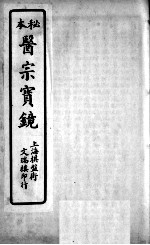 秘本
醫宗寳鏡
上海棋盤街
文瑞樓印行